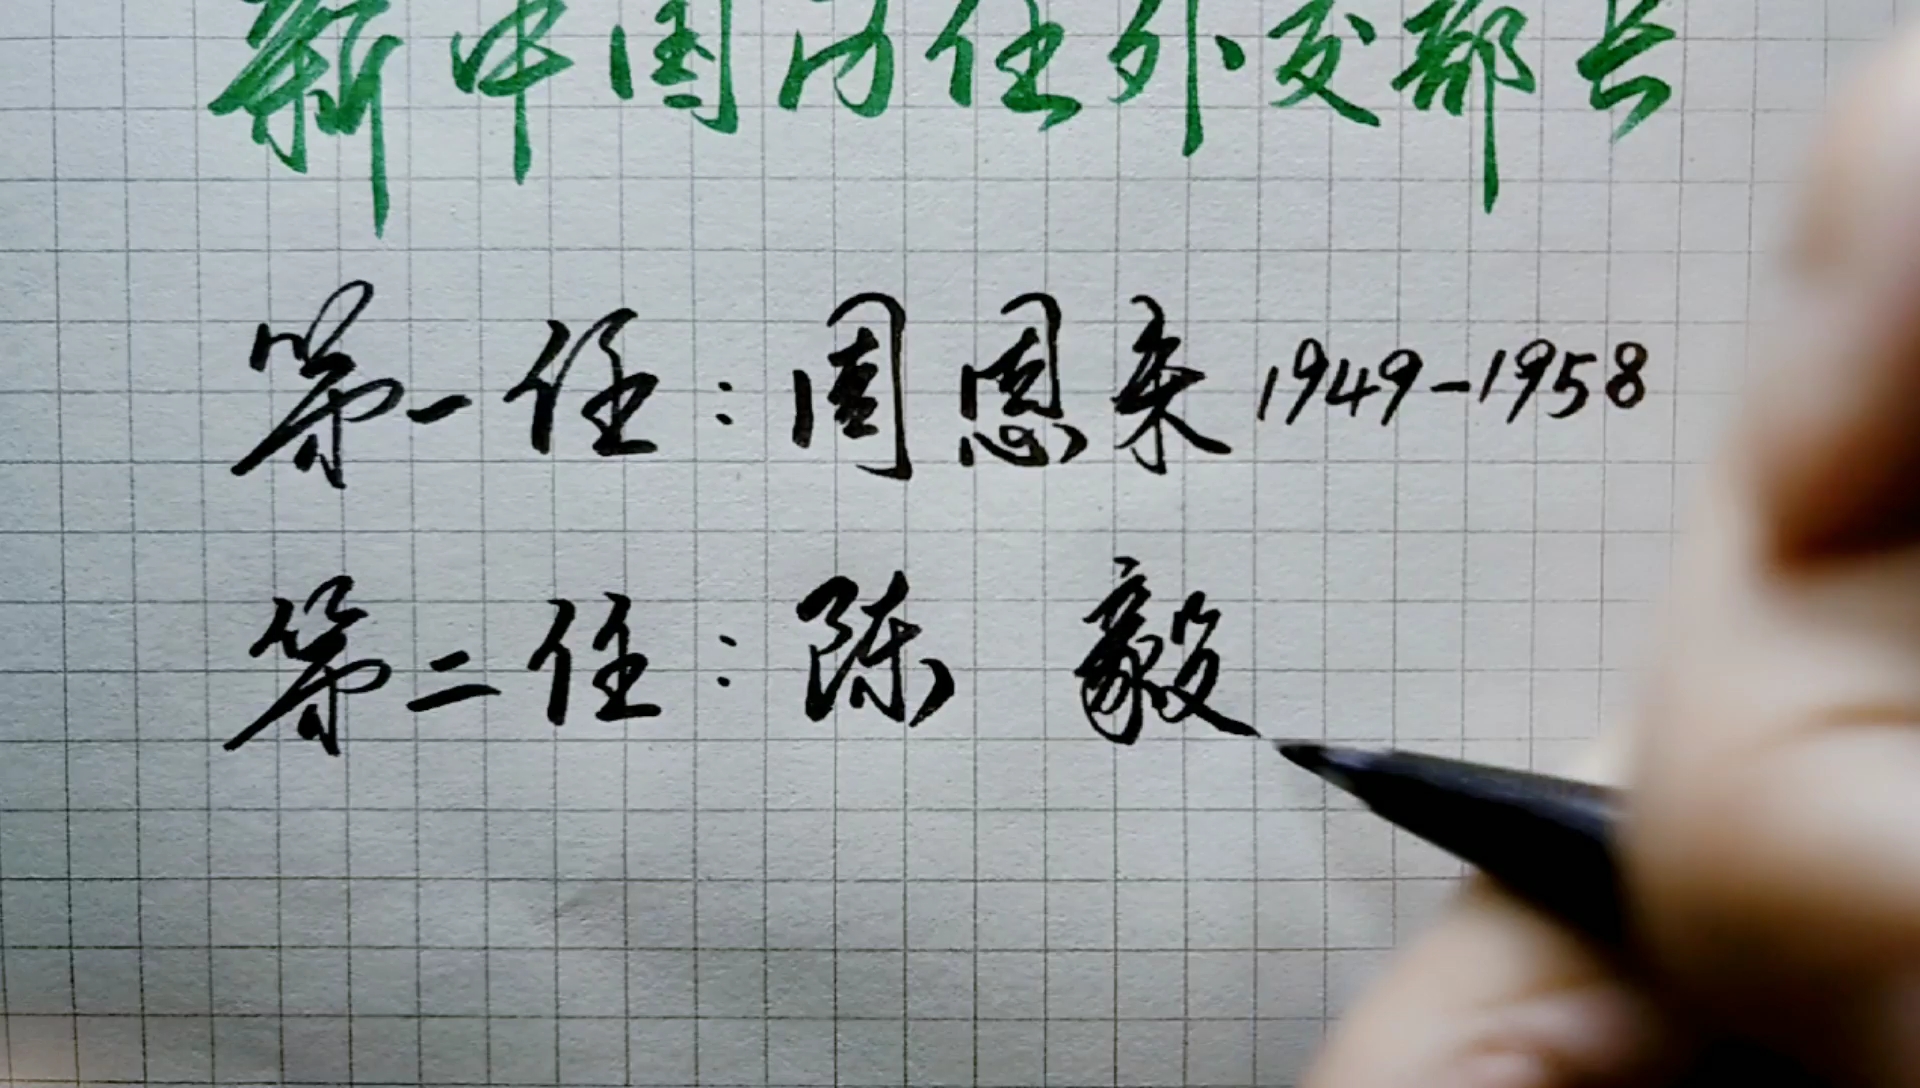 新中国历任外交部长
第一任:周恩来 1949-1958
第二任:陈 毅